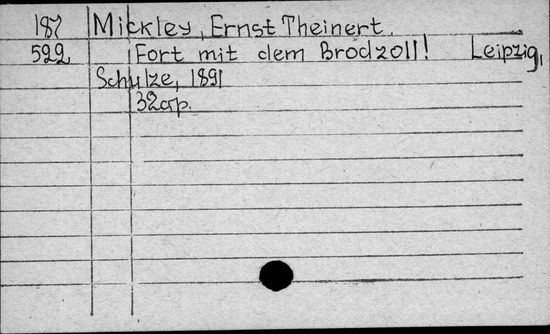 187 Mickley, Ernst Theinert.
592 Fort mit dem Brodzoll! Leipzig,
Schulze, 1891
32 стр.